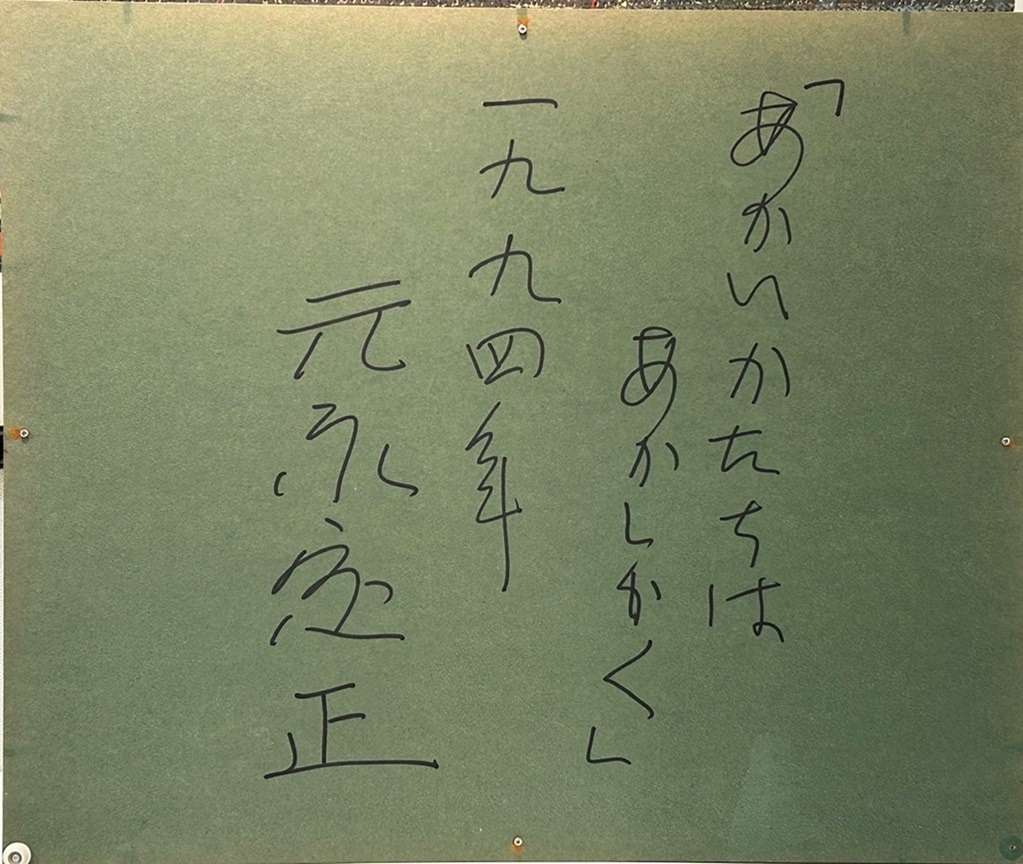 「あかいかたちは
あかしかく」
一九九四年
元永定正